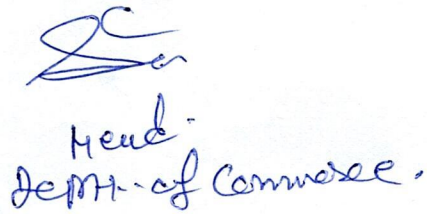 Head.
Deptt. of Commerce.